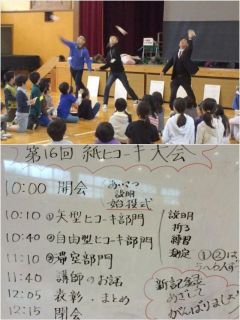 第16回 紙ヒコーキ大会
10:00 開会 あいさつ
説明
始投式
10:10 ①矢型ヒコーキ部門 説明
10:40 ②自由型ヒコーキ部門 折り
練習
測定
11:10 滞空部門 ①②は
11:40 講師のお話 新記録を
めざして
がんばりましょう
12:05 表彰・まとめ
12:15 閉会